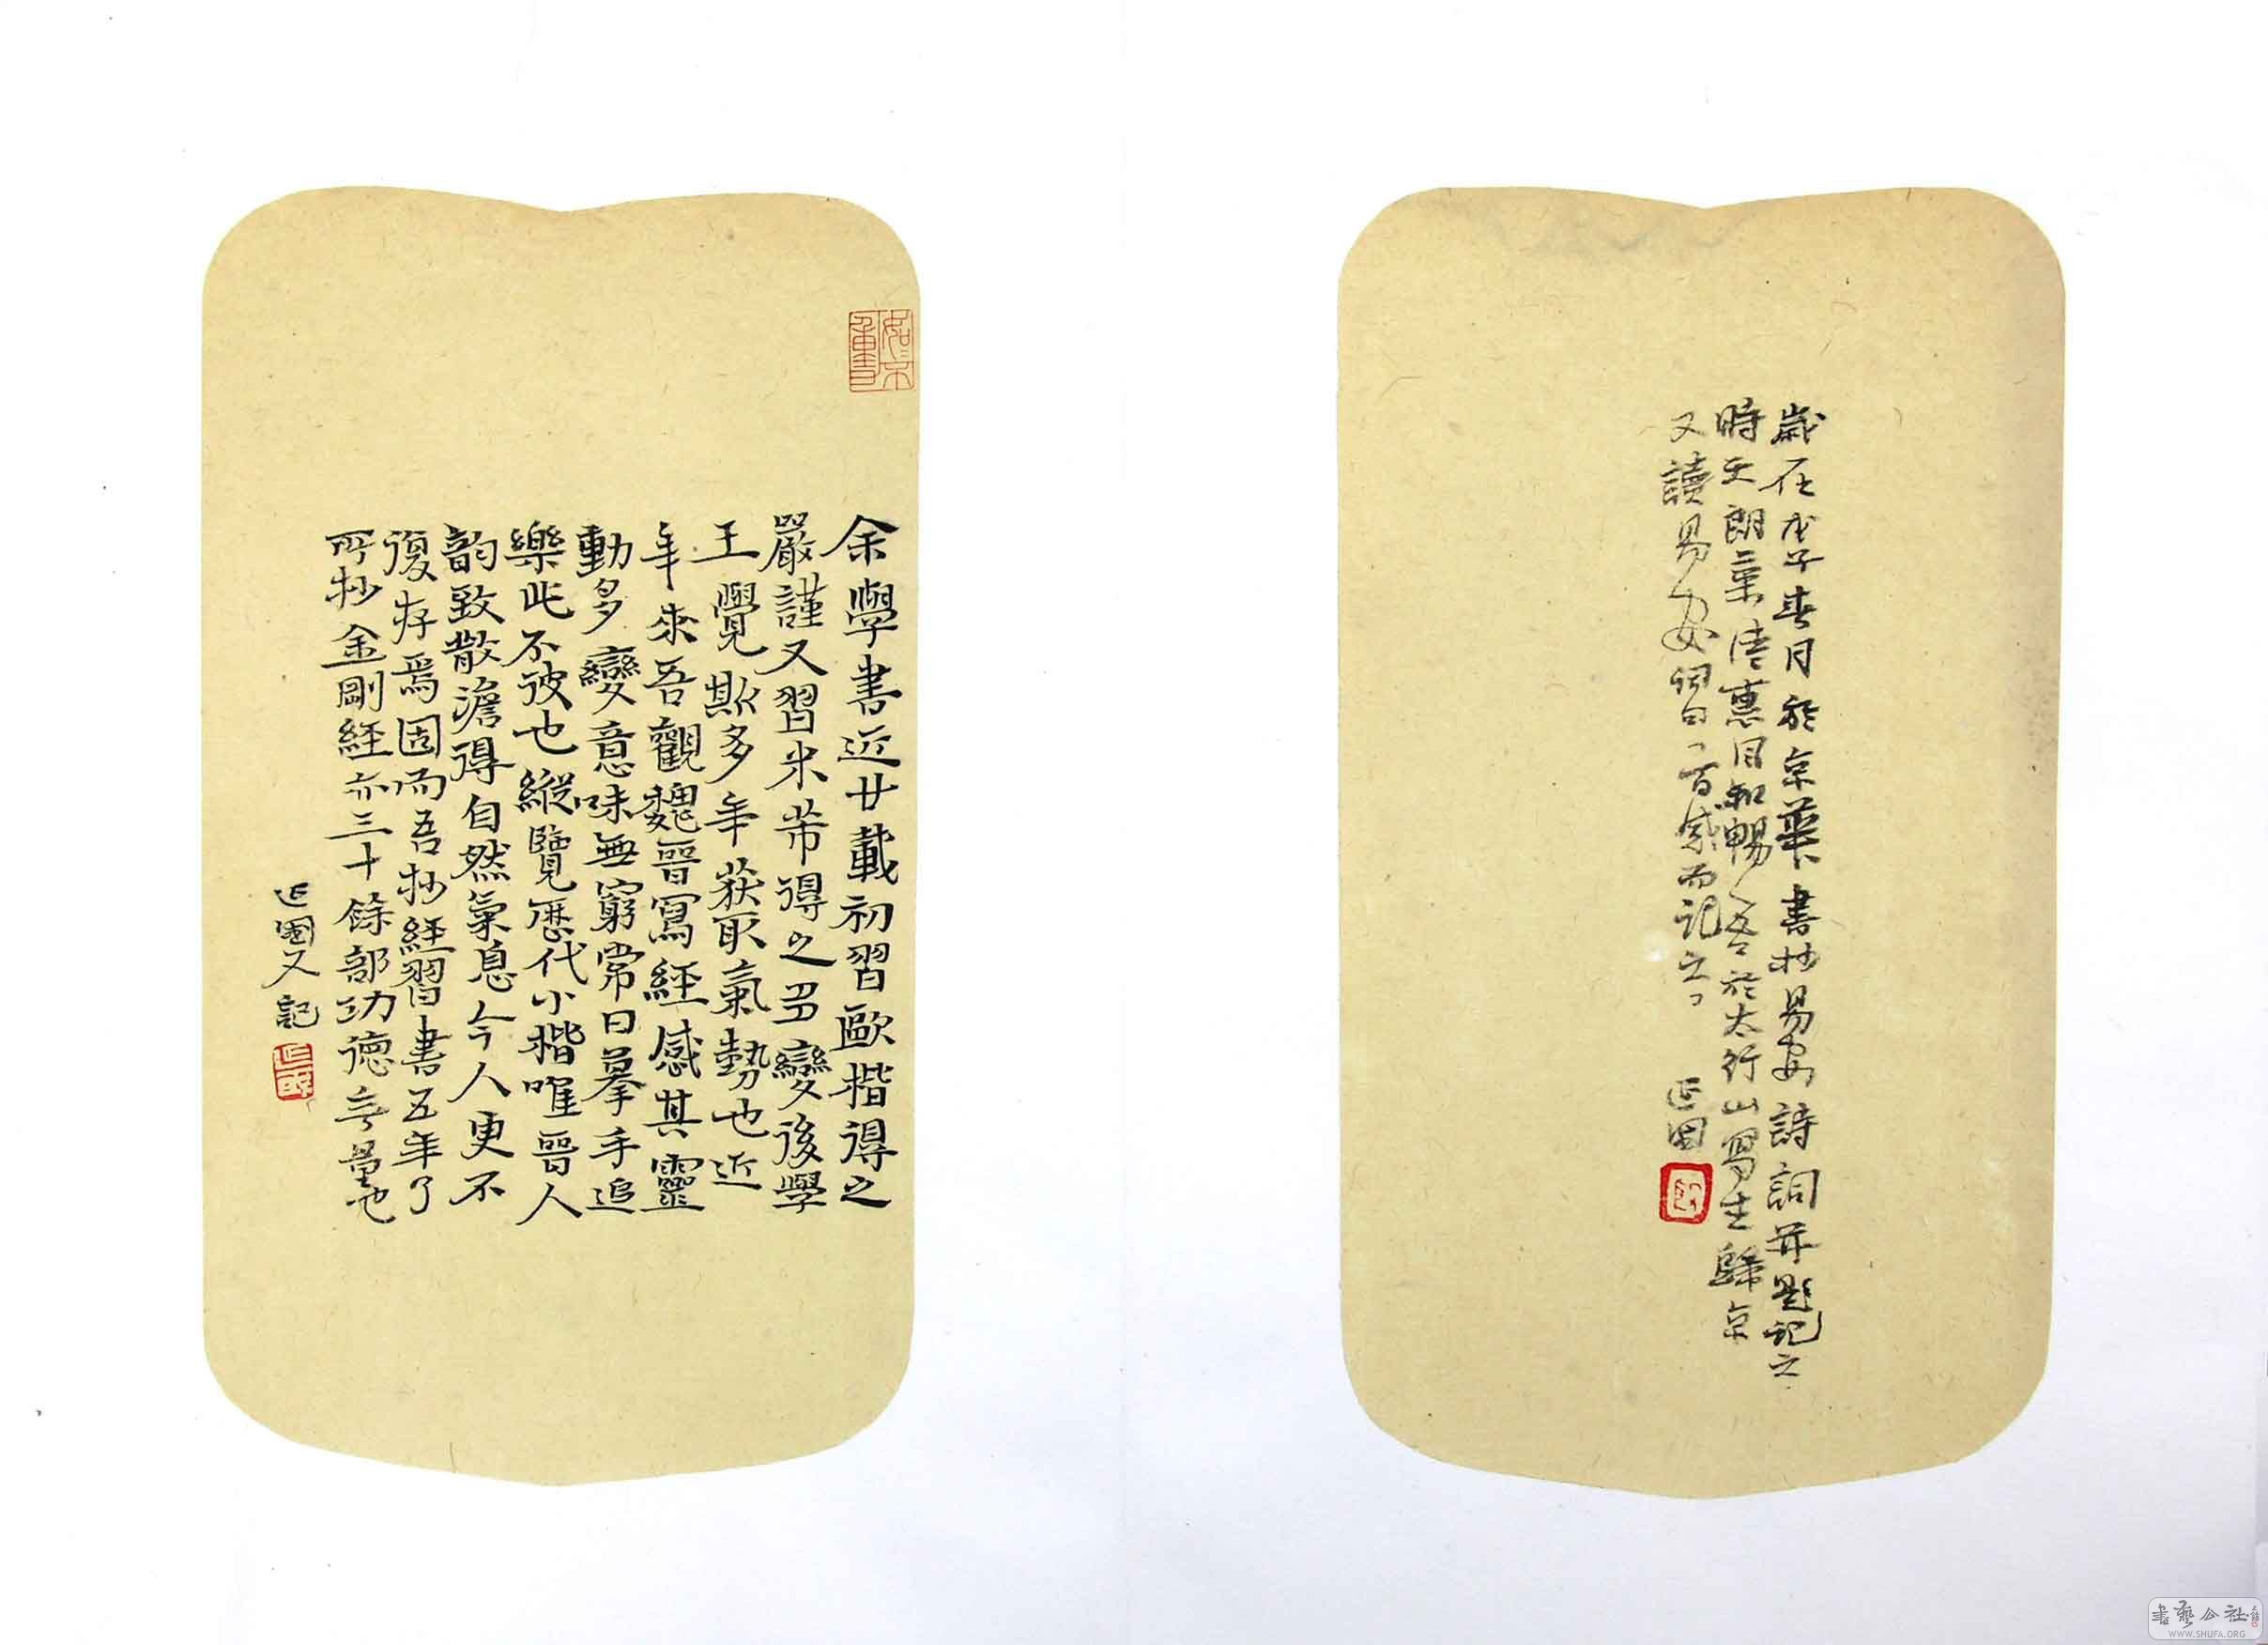 歲在戊子春月於京華書抄易安詩詞并題記之
時天朗氣清惠風和暢吾於太行山寫生歸京
又讀易安詞有感而記之
延國
余學書近廿載初習歐楷得之
嚴謹又習米芾得之多變後學
王覺斯多年獲取氣勢也近
年來吾觀魏晉寫經感其靈
動多變意味無窮常日摹手追
樂此不彼也縱覽歷代小楷唯晉人
韵致散澹得自然氣息今人更不
復存焉固而吾抄經習書五年了
所抄金剛經亦三十餘部功德無量也
延國又記
書藝公社
WWW.SHUFA.ORG